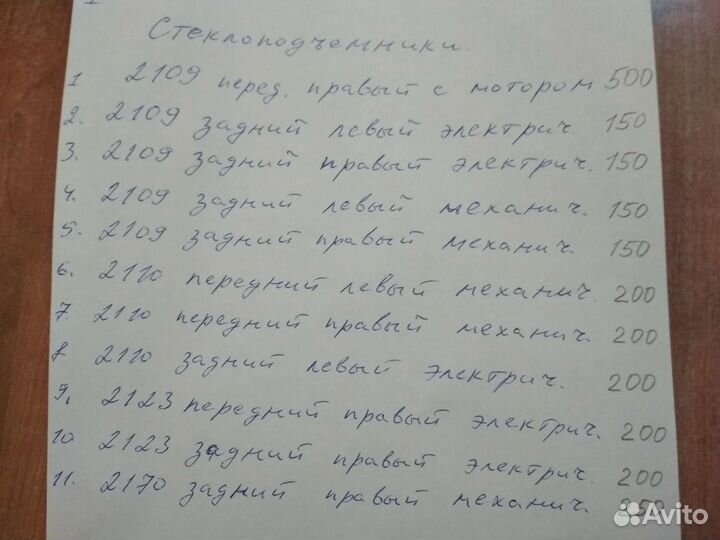 Стеклоподъемники.
1 2109 перед. правый с мотором 500
2. 2109 задний левый электрич. 150
3. 2109 задний правый электрич. 150
4. 2109 задний левый механич. 150
5. 2109 задний правый механич. 150
6. 2110 передний левый механич. 200
7. 2110 передний правый механич. 200
8 2110 задний левый электрич. 200
9. 2123 передний правый электрич. 200
10 2123 задний правый электрич. 200
11. 2170 задний правый механич.
Avito